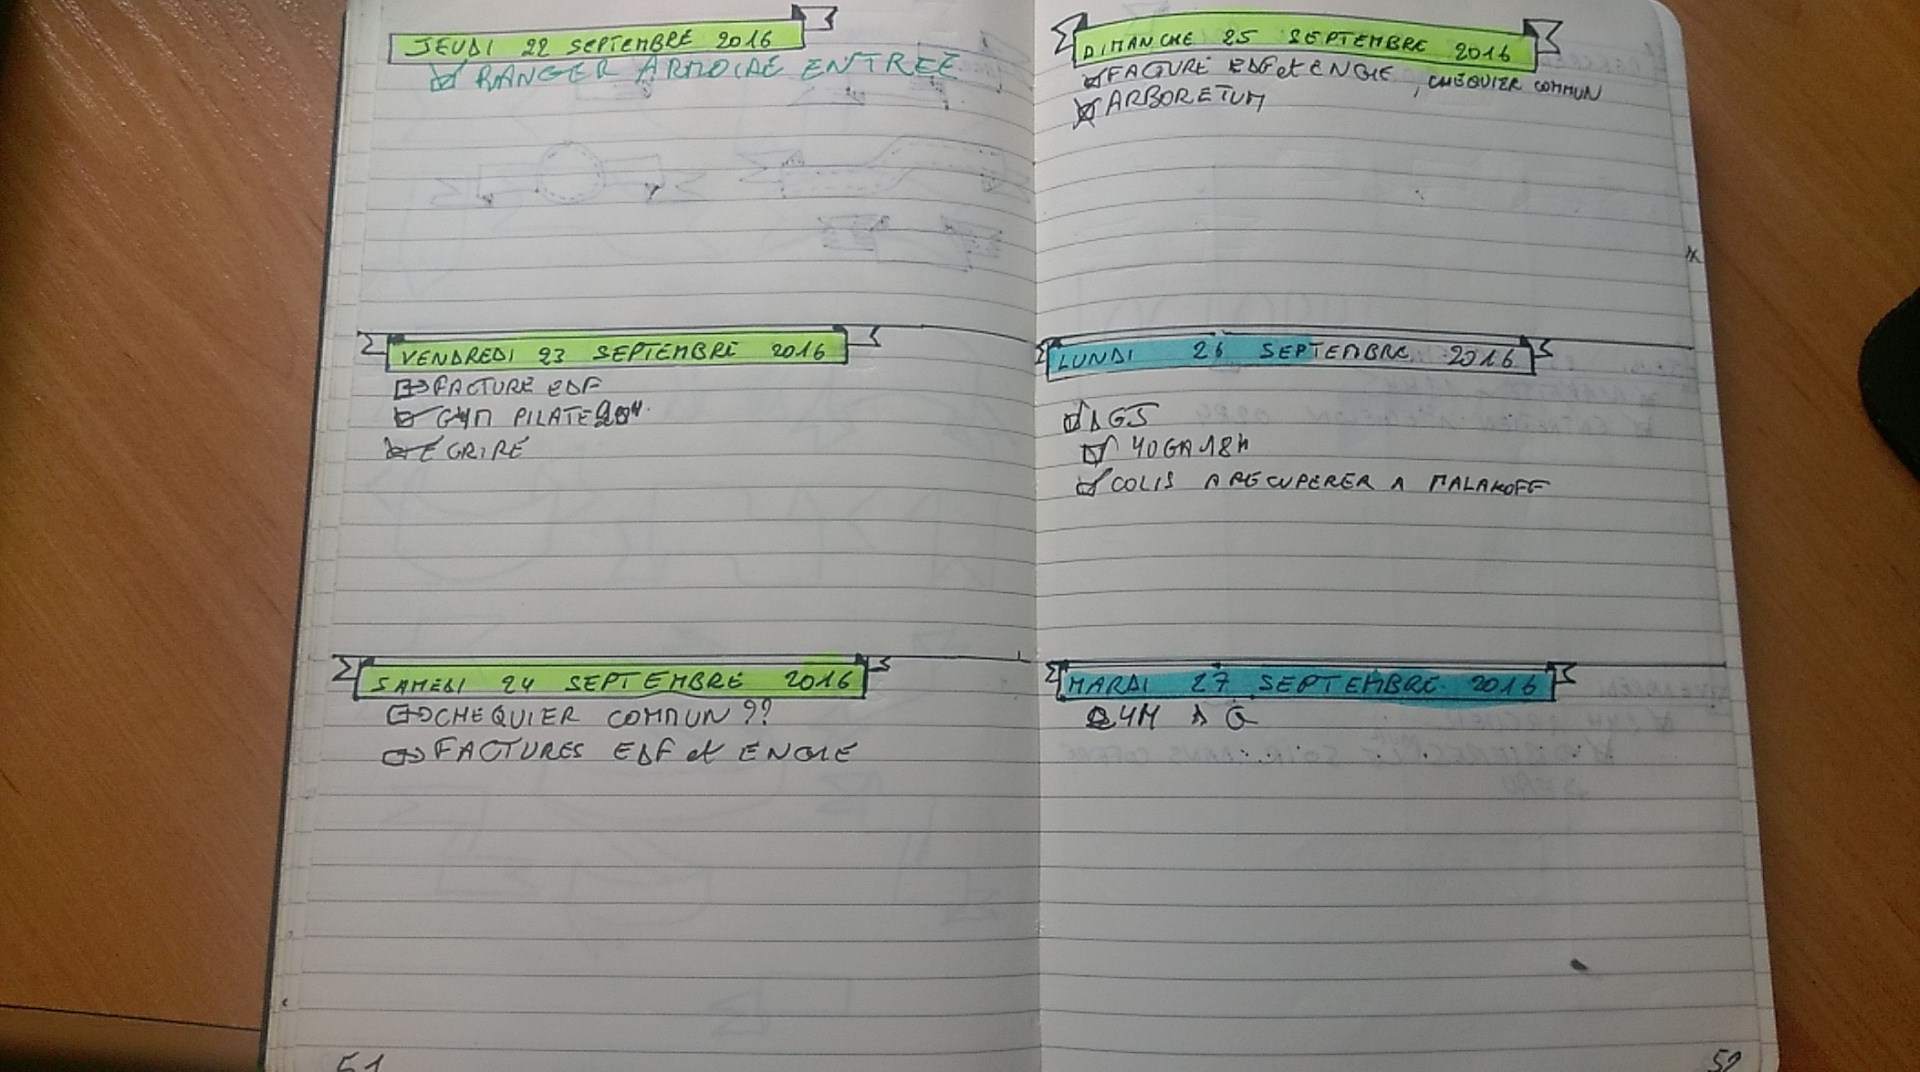 JEUDI 22 SEPTEMBRE 2016
RANGER ARMOIRE ENTREE
VENDREDI 23 SEPTEMBRE 2016
FACTURE EDF
GYM PILATE
ECRIRE
SAMEDI 24 SEPTEMBRE 2016
CHEQUIER COMMUN ??
FACTURES EDF et ENGIE
51
DIMANCHE 25 SEPTEMBRE 2016
FACTURE EDF et ENGIE, CHEQUIER COMMUN
ARBORETUM
LUNDI 26 SEPTEMBRE 2016
AGS
YOGA 18H
COLIS A RECUPERER A MALAKOFF
MARDI 27 SEPTEMBRE 2016
52